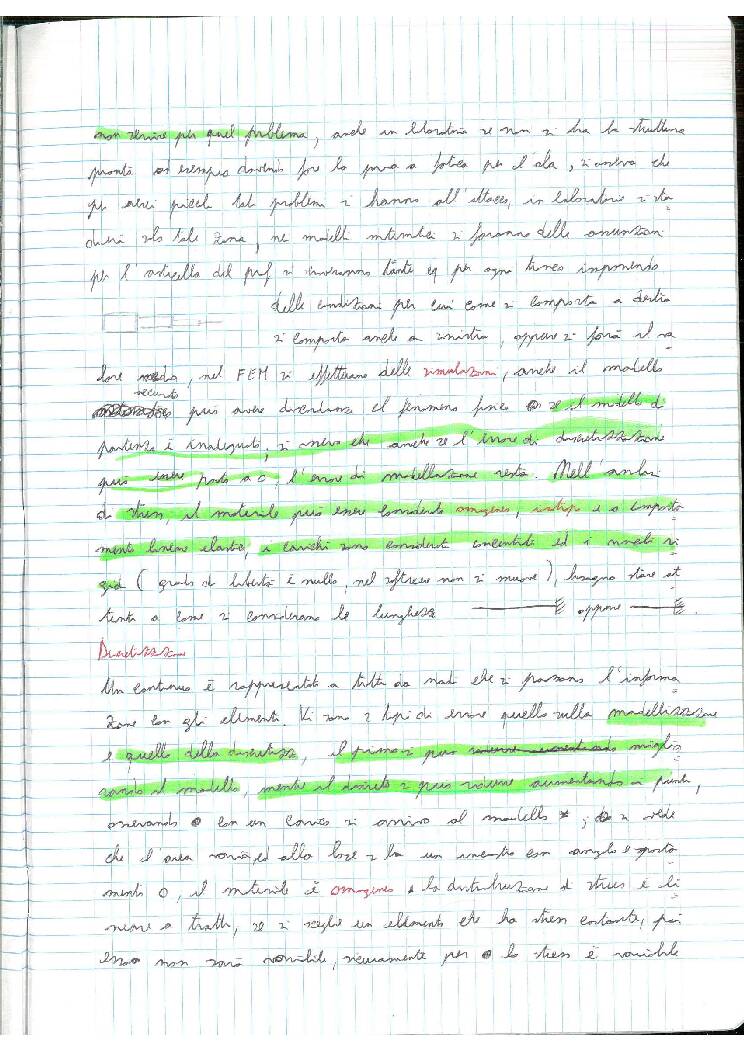 non servire per quel problema, anche in laboratorio se non si ha la struttura
pronta ad esempio dovendo fare la prova a fatica per l'ala, si osserva che
per aerei piccoli tali problemi si hanno all'attacco, in laboratorio si stu
dierà solo tale zona, nei modelli matematici si faranno delle assunzioni
per l' del prof si troveranno tante eq per ogni tronco imponendo
delle condizioni per cui come si comporta a destra
si comporta anche a sinistra, oppure si farà il va
lore medio, nel FEM si effettuano delle simulazioni, anche il modello
può avere il fenomeno fisico se il modello di
partenza è inadeguato, si osserva che anche se l'errore di discretizzazione
può essere posto a 0, l'errore di modellazione resta. Nell'analisi
di stress, il materiale può essere considerato omogeneo, isotropo e a comporta
mento lineare elastico, i carichi sono considerati concentrati ed i vincoli ri
gidi (grado di libertà è nullo, nel software non si muove), bisogna stare at
tenti a come si considerano le lunghezze oppure .
Discretizzazione
Un continuo è rappresentato a tratti da nodi che si passano l'informa
zione con gli elementi. Vi sono 2 tipi di errore quello sulla modellizzazione
e quello della discretizz, il primo si può miglio
rando il modello, mentre il discreto si può ridurre aumentando i punti,
osservando con un si arriva al modello *, si vede
che l'area varia, ed alla base si ha un incastro con angolo e sposta
menti 0, il materiale è omogeneo e la distribuzione di stress è li
neare a tratti, se si sceglie un elemento che ha stress costante, poi
esso non sarà variabile, sicuramente per lo stress è variabile